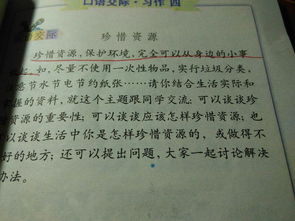 口语交际·习作 四
交际
珍惜资源
珍惜资源，保护环境，完全可以从身边的小事
起。如，尽量不使用一次性物品，实行垃圾分类，
节水节电节约纸张……请你结合生活实际和
的资料，就这个主题跟同学交流；可以谈谈珍
资源的重要性；可以谈谈应该怎样珍惜资源；也
以谈谈生活中你是怎样珍惜资源的，或做得不
好的地方；还可以提出问题，大家一起讨论解决
办法。